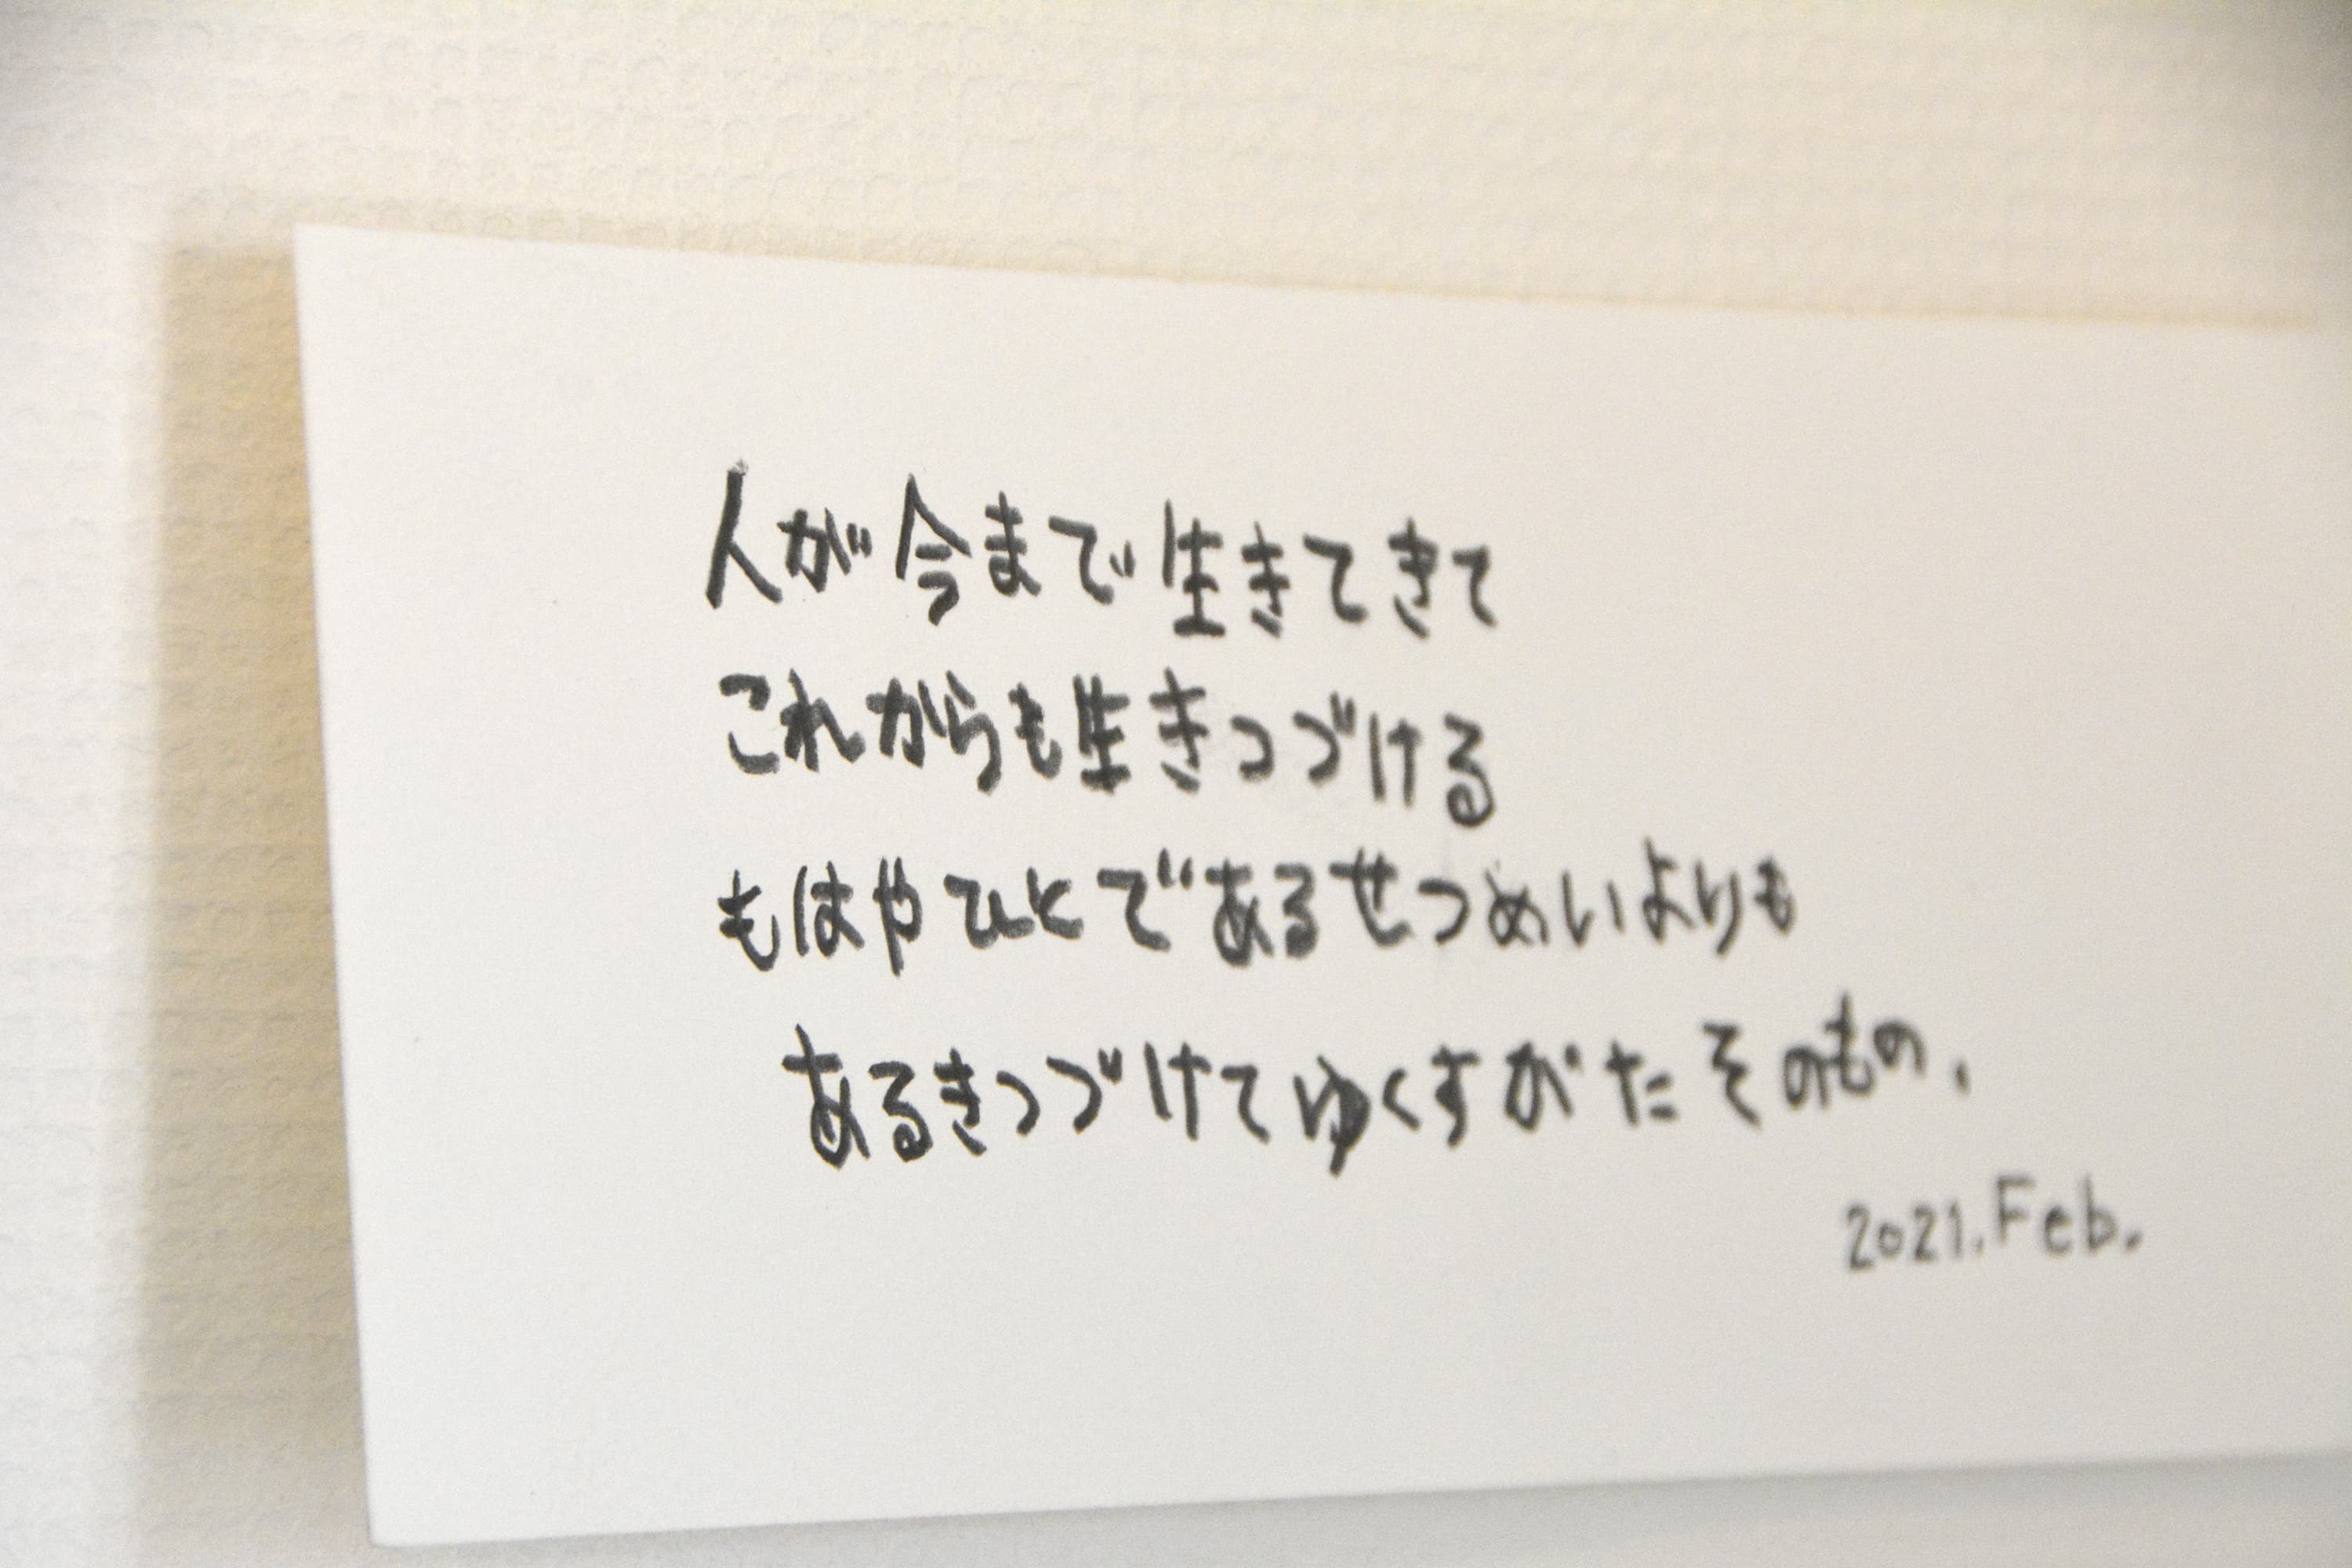 人が今まで生きてきて
これからも生きつづける
もはやひとであるせつめいよりも
あるきつづけてゆくすがたそのもの.
2021.Feb.